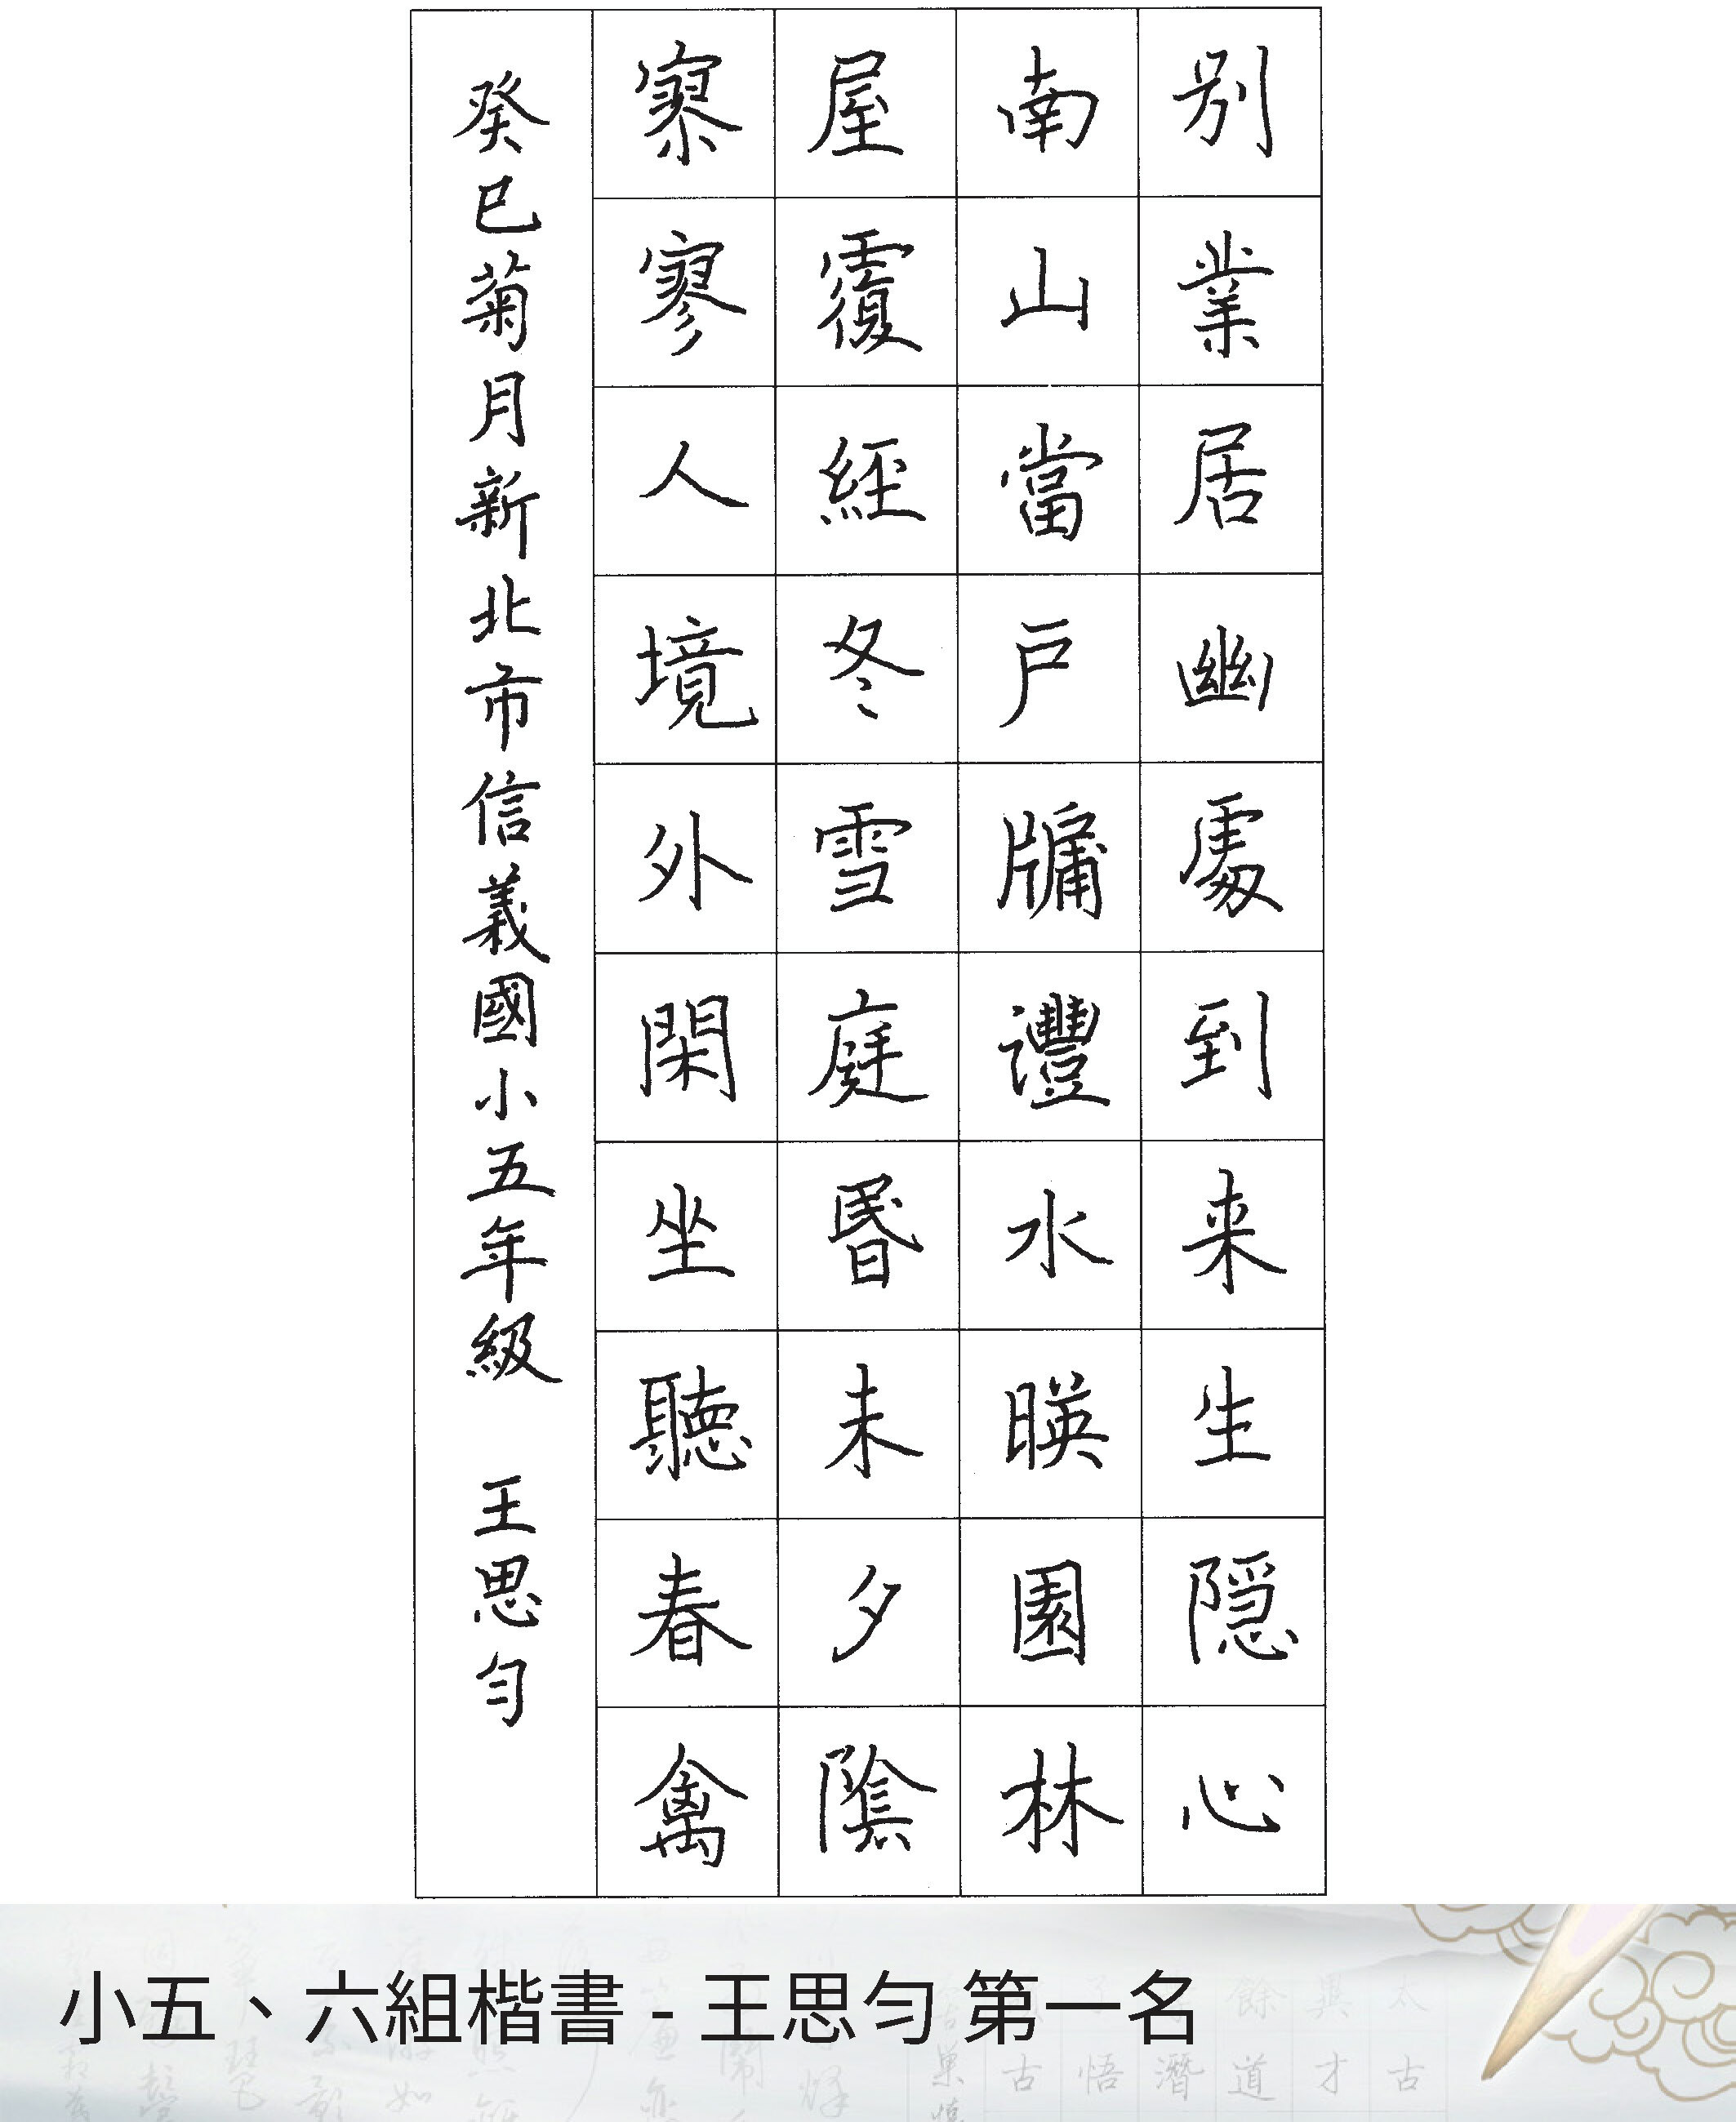 别業居幽處到来生隱心
南山當戶牖灃水暎園林
屋覆經冬雪庭昬未夕陰
寂寥人境外閑坐聽春禽
癸巳菊月新北市信義國小五年級 王思勻
小五、六組楷書 - 王思勻 第一名